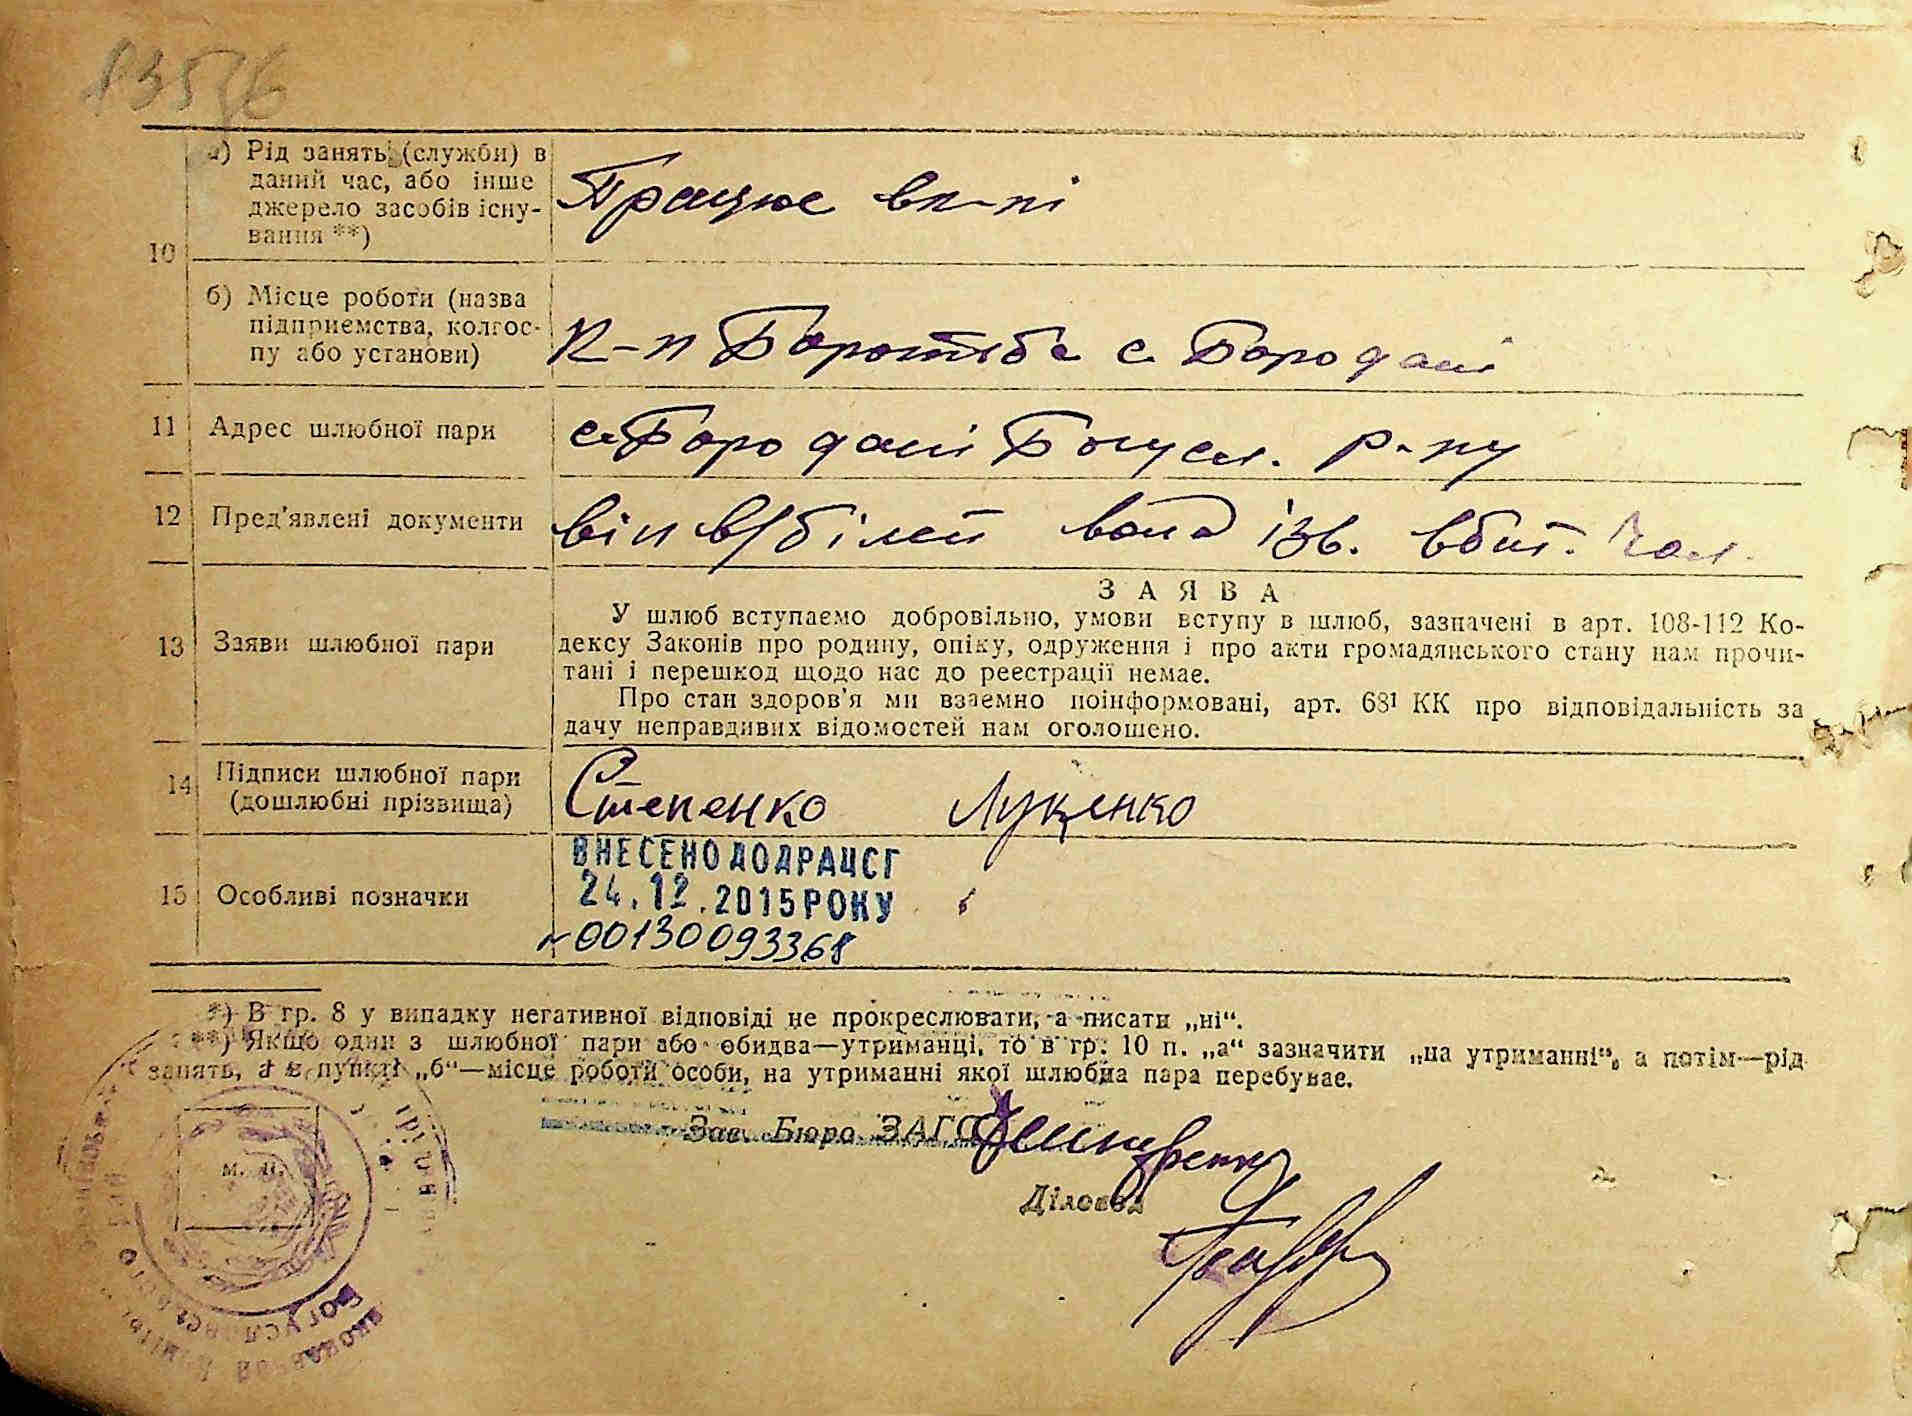 а) Рід занять (служби) в
даний час, або інше
джерело засобів існу-
вання **)
Працює в к-пі
10
б) Місце роботи (назва
підприємства, колгос-
пу або установи)
к-п Боротьба с. Бородані
11 Адрес шлюбної пари
с. Бородані Богусл. р-ну
12 Пред'явлені документи
він в/білет вона ізв. вбит. чол.
13 Заяви шлюбної пари
ЗАЯВА
У шлюб вступаємо добровільно, умови вступу в шлюб, зазначені в арт. 108-112 Ко-
дексу Законів про родину, опіку, одруження і про акти громадянського стану нам прочи-
тані і перешкод щодо нас до реєстрації немає.
Про стан здоров'я ми взаємно поінформовані, арт. 68¹ КК про відповідальність за
дачу неправдивих відомостей нам оголошено.
14 Підписи шлюбної пари
(дошлюбні прізвища)
Степенко Луценко
15 Особливі позначки
ВНЕСЕНО ДО ДРАЦСГ
24.12.2015 РОКУ
№ 00130093368
*) В гр. 8 у випадку негативної відповіді не прокреслювати, а писати „ні“.
**) Якщо один з шлюбної пари або обидва—утриманці, то в гр. 10 п. „а“ зазначити „на утриманні“, а потім—рід
занять, а в пункті „б“—місце роботи особи, на утриманні якої шлюбна пара перебуває.
Зав. Бюро ЗАГС
Діловод
м. п.